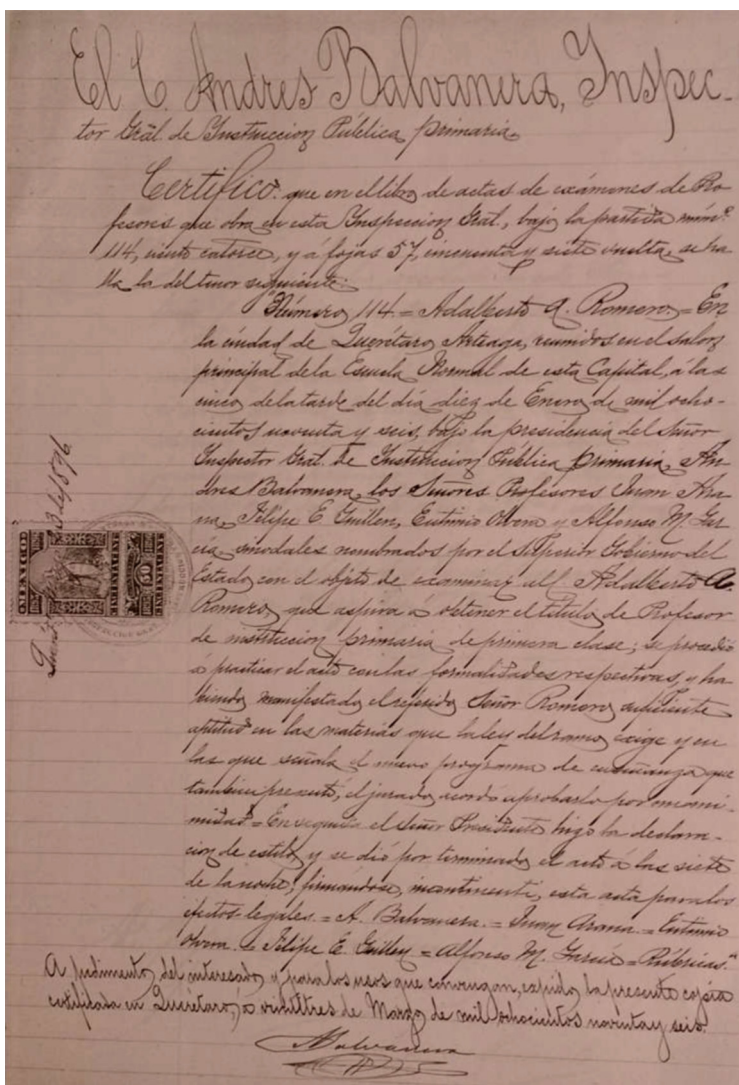 El C. Andres Balvanera, Inspec-
tor Gral. de Instruccion Pública primaria
Certifico: que en el libro de actas de exámenes de Pro
fesores que obra en esta Inspeccion Gral., bajo la partida núm.º
114, ciento catorce, y á fojas 57, cincuenta y siete vuelta, se ha
lla la del tenor siguiente:
"Número 114 = Adalberto A. Romero. = En
la ciudad de Querétaro Arteaga, reunidos en el salon
principal de la Escuela Normal de esta Capital, á las
cinco de la tarde del día diez de Enero de mil ocho-
cientos noventa y seis, bajo la presidencia del Señor
Inspector Gral. de Instruccion Pública primaria, An
dres Balvanera, los Señores Profesores Juan Ara
na, Felipe E. Guillen, Eutimio Olvera y Alfonso M. Gar
cía, sinodales nombrados por el Superior Gobierno del
Estado con el objeto de examinar al C. Adalberto A.
Romero, que aspira á obtener el título de Profesor
de instruccion primaria de primera clase; se procedió
á practicar el acto con las formalidades respectivas, y ha
biendo manifestado el referido Señor Romero suficiente
aptitud en las materias que la ley del ramo exige y en
las que señala el nuevo programa de enseñanza que
tambien presentó, el jurado acordó aprobarlo por unani-
midad = En seguida el Señor Presidente hizo la declara-
cion de estilo, y se dió por terminado el acto á las siete
de la noche, firmándose, incontinenti, esta acta para los
efectos legales. = A. Balvanera. = Juan Arana = Eutimio
Olvera. = Felipe E. Guillen = Alfonso M. García = Rúbricas."
A pedimento del interesado y para los usos que convengan, expido la presente copia
certificada en Querétaro, á veintitres de Marzo de mil ochocientos noventa y seis.
Balvanera
MEXICO
50
3 de 1896